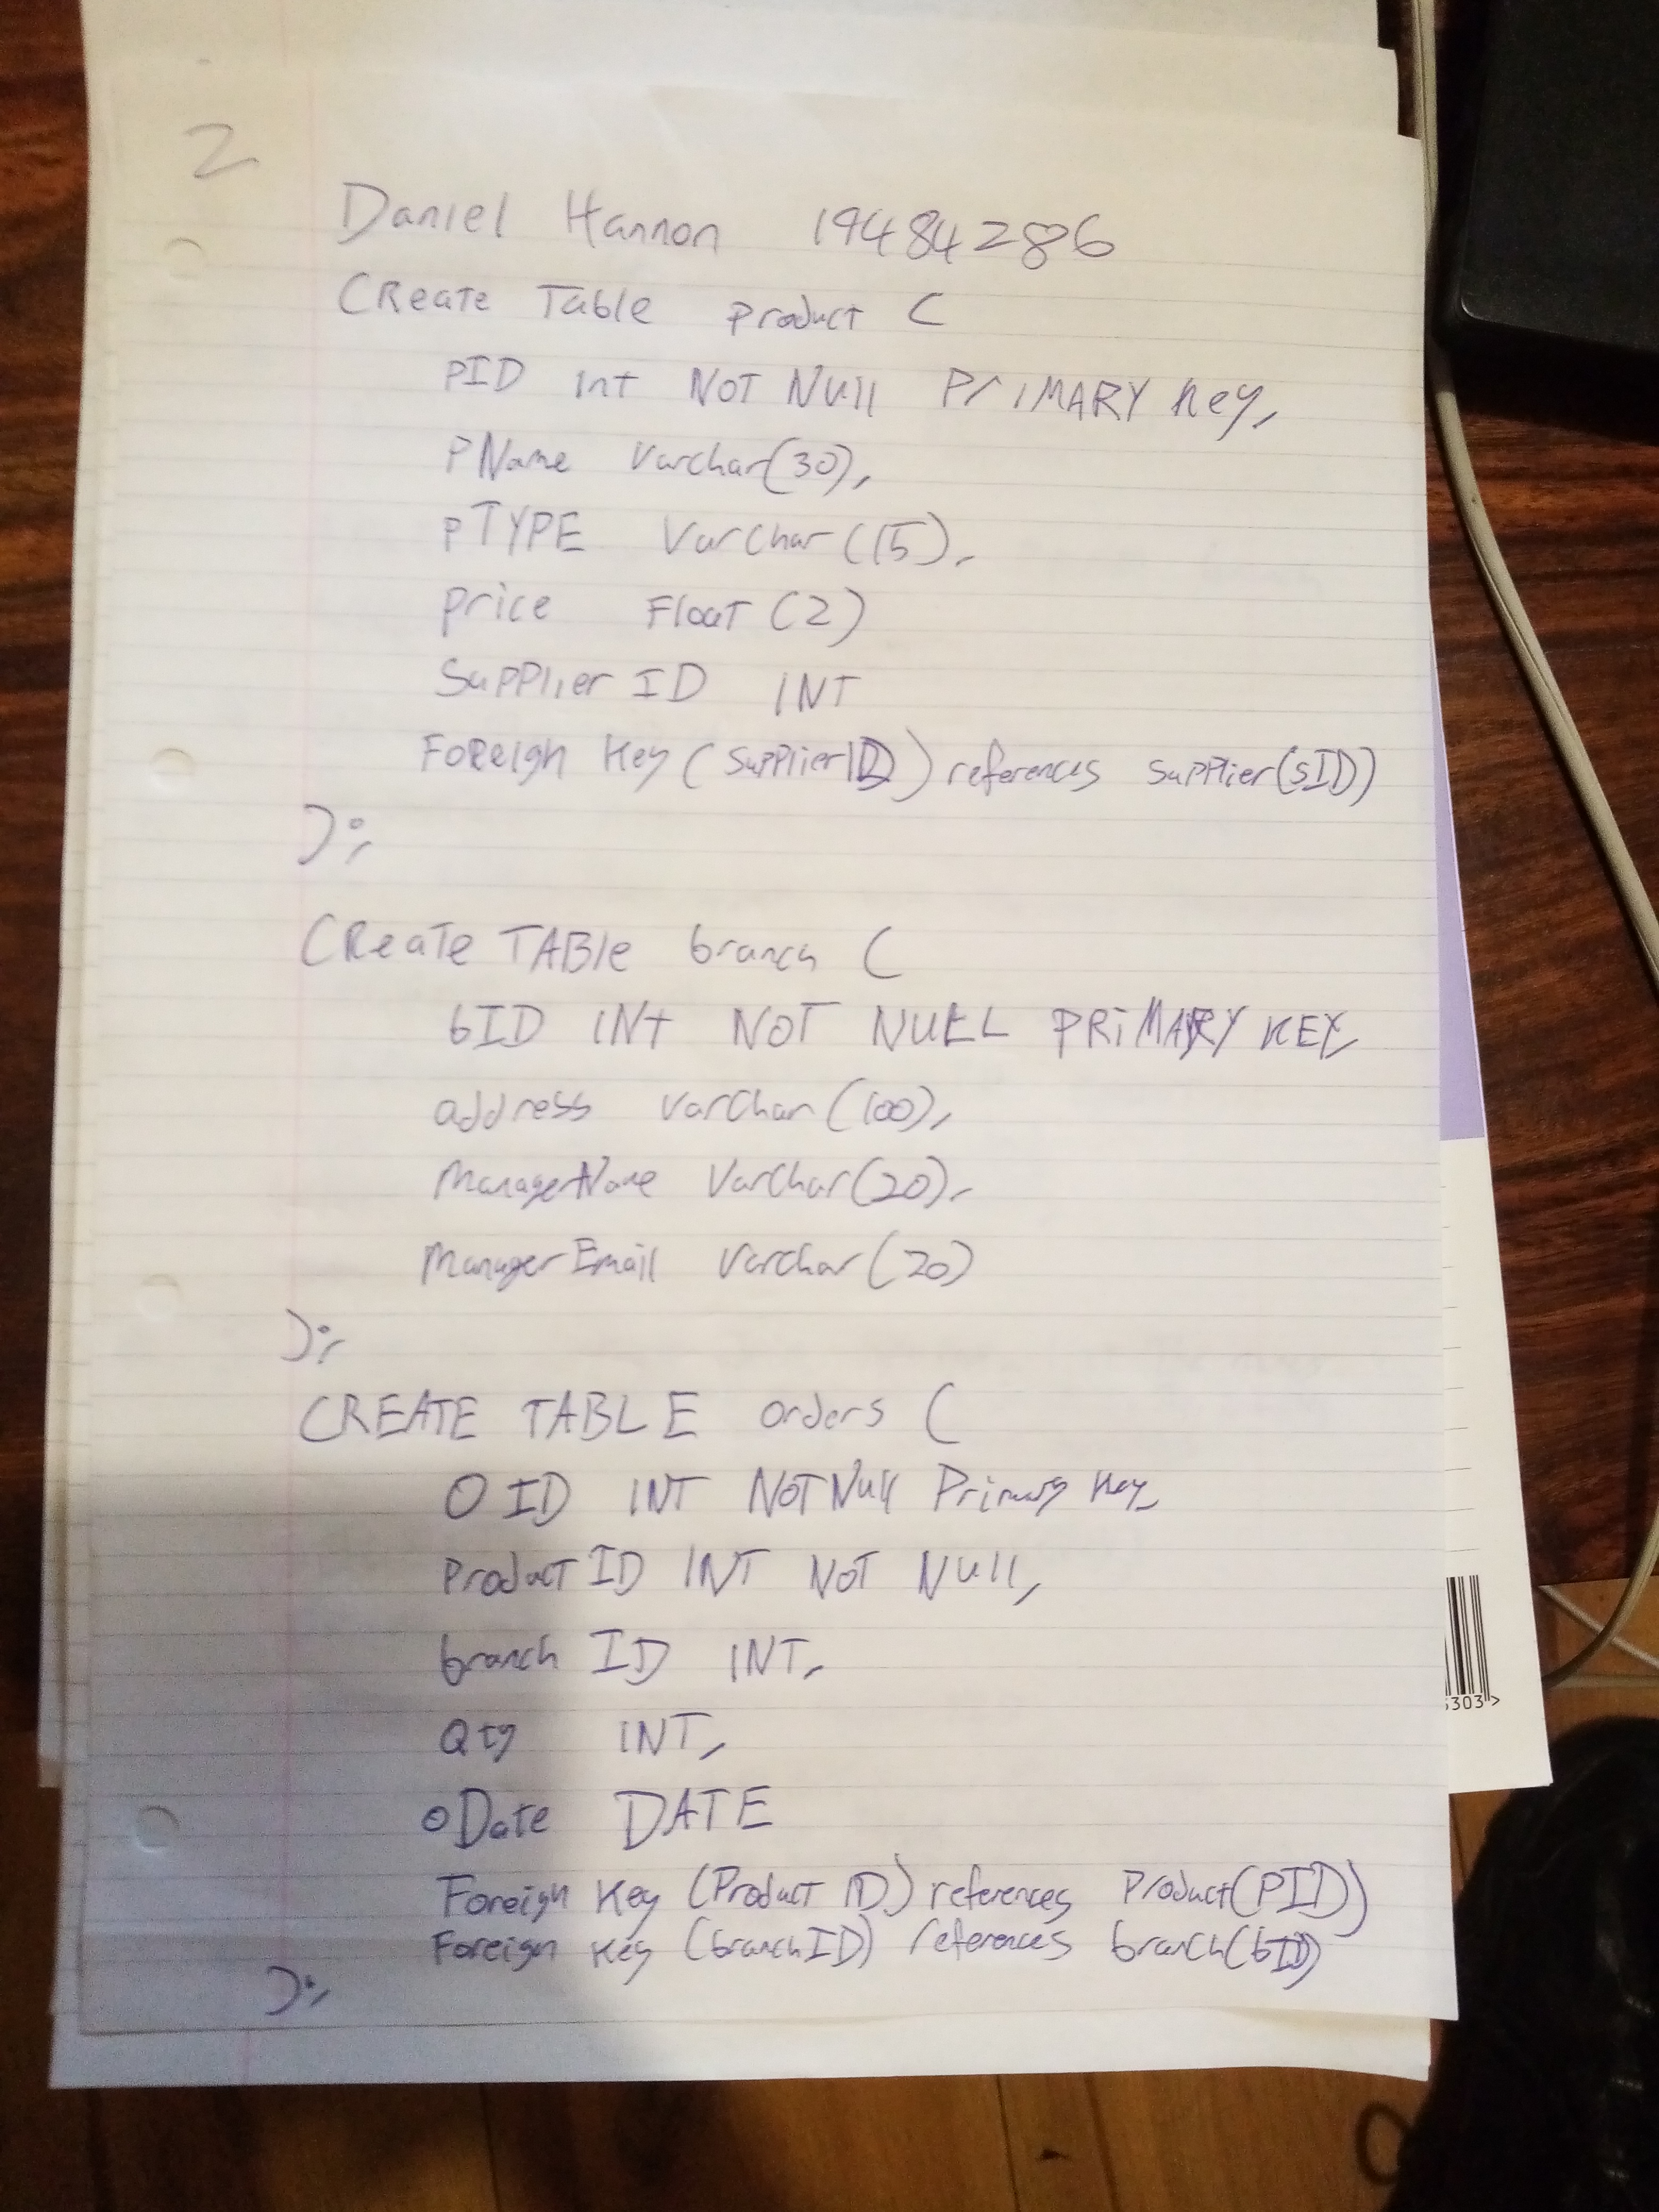 2
Daniel Hannon 19484286
CReate Table product (
pID int NOT NUll PriMARY Key,
PName Varchar(30),
pTYPE VarChar(15),
price FloaT (2)
SuppLier ID INT
FoReIgn Key (SuppLierID) references supplier(sID)
);
CReaTe TABle branch (
bID INt NOT NULL PRiMARY KEY,
address varChar(100),
ManagerName VarChar(20),
ManagerEmail Varchar(20)
);
CREATE TABLE orders (
OID INT NOT Null Primary Key,
ProducT ID INT NOT Null,
branch ID INT,
Qty INT,
oDate DATE
Foreign Key (Product ID) references Product(PID)
Foreign Key (branchID) references branch(bID)
);
5303>